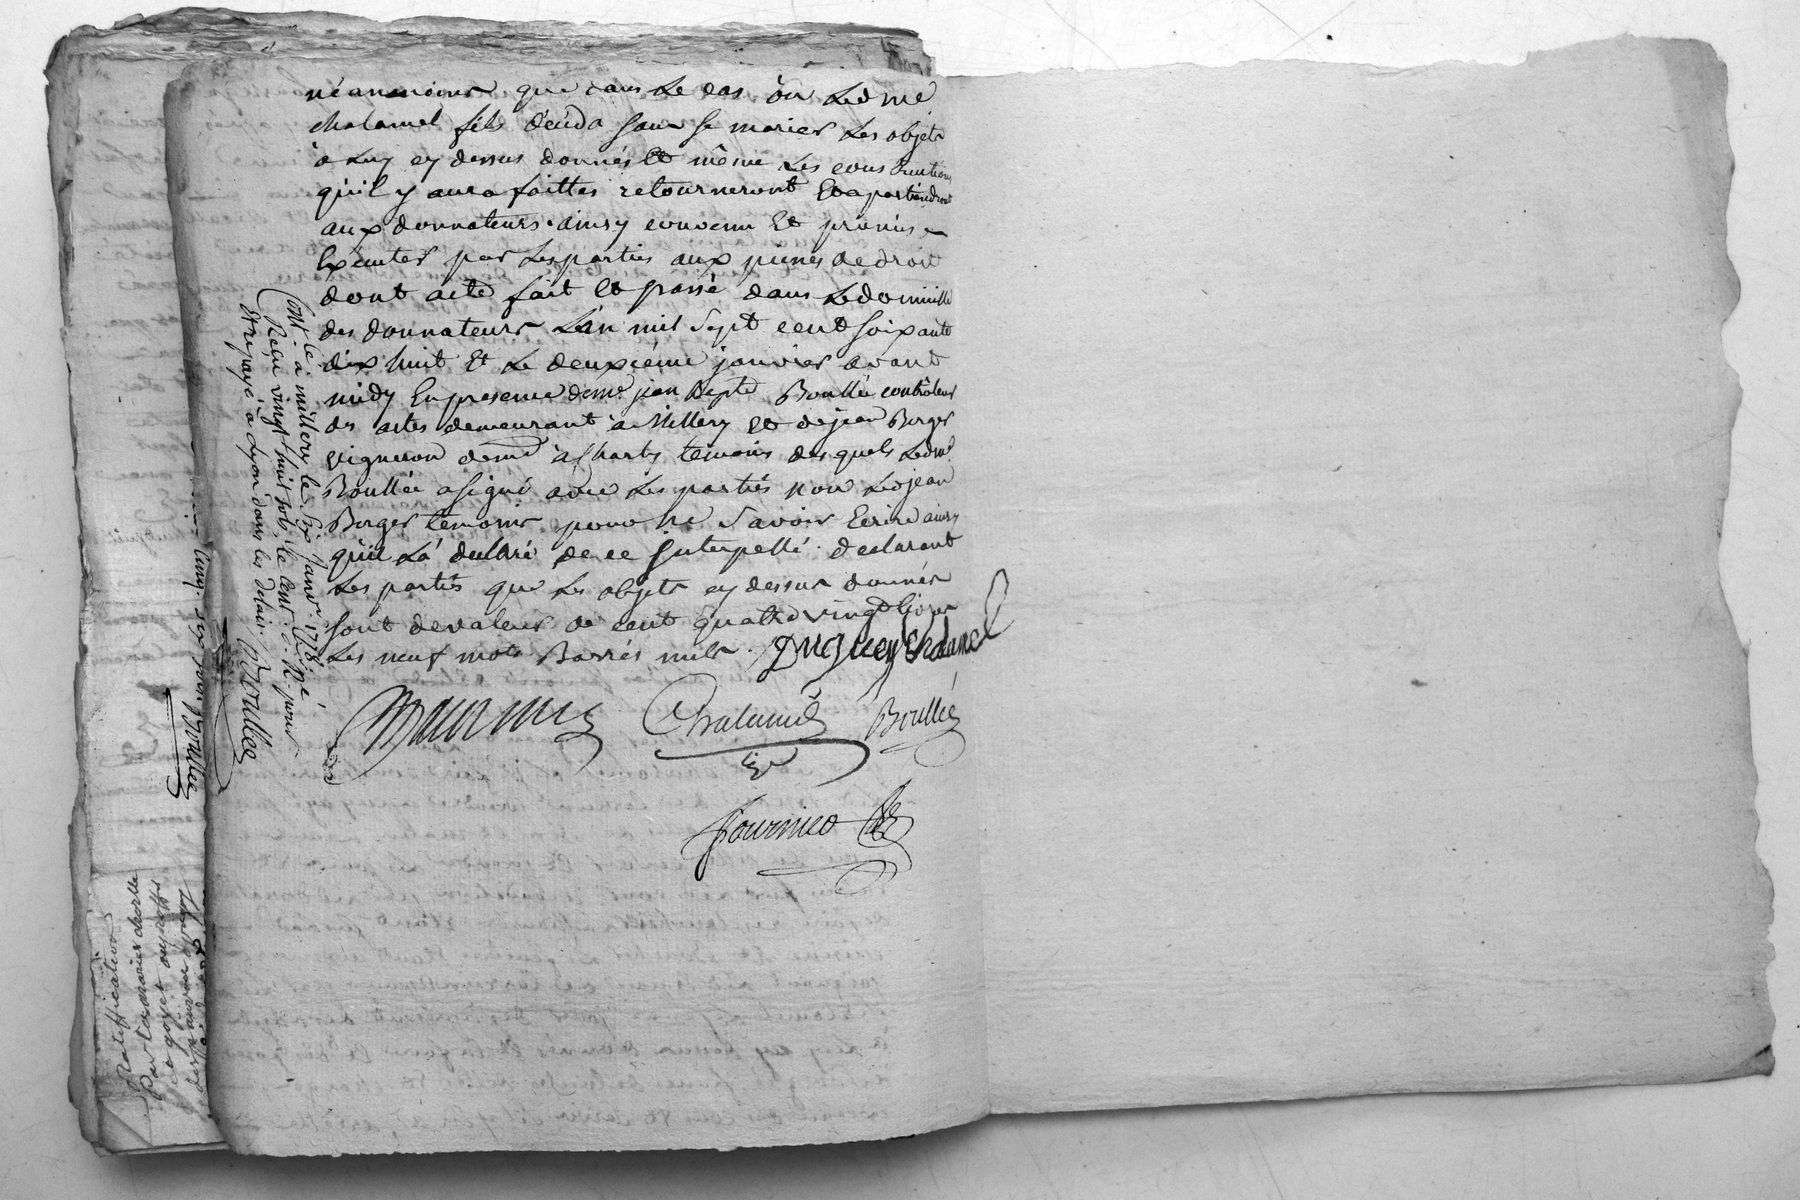 néanmoins que dans Le cas où Led me
chalamel fils déceda sans se marier Les objets
a Luy cy dessus donnés Et même Les constructions
qu'il y aura faittes retourneront Et apartiendront
aux donnateurs. ainsy convenu Et promis
Exécuter par Les parties aux peines de droit
dont acte fait Et passé dans Le domicille
des donnateurs L'an mil sept cent soixante
dix huit Et Le deuxième janvier avant
midy En presence de mr jean Bapte Boullée contrôleur
des actes demeurant à Millery Et de jean Berger
vigneron demt à Charly temoins des quels Led mr
Boullée a signé avec Les parties non Led jean
Berger temoins pour ne savoir Ecrire ainsy
qu'il L'a declaré de ce Interpellé. declarant
Les partis que Les objets cy dessus donnés
sont de valeur de cent quatre vingt livres
Les neuf mots Barrés nuls.
Duguey Chalamel
Chalamel Boullée
Fournier
Contlé à millery le six Janvr 1778
Reçu vingt huit sols, le cent. d. Re pour
Etre payé à Lyon dans les delais. Boullée
Boullée
Ratiffication
par Claudine